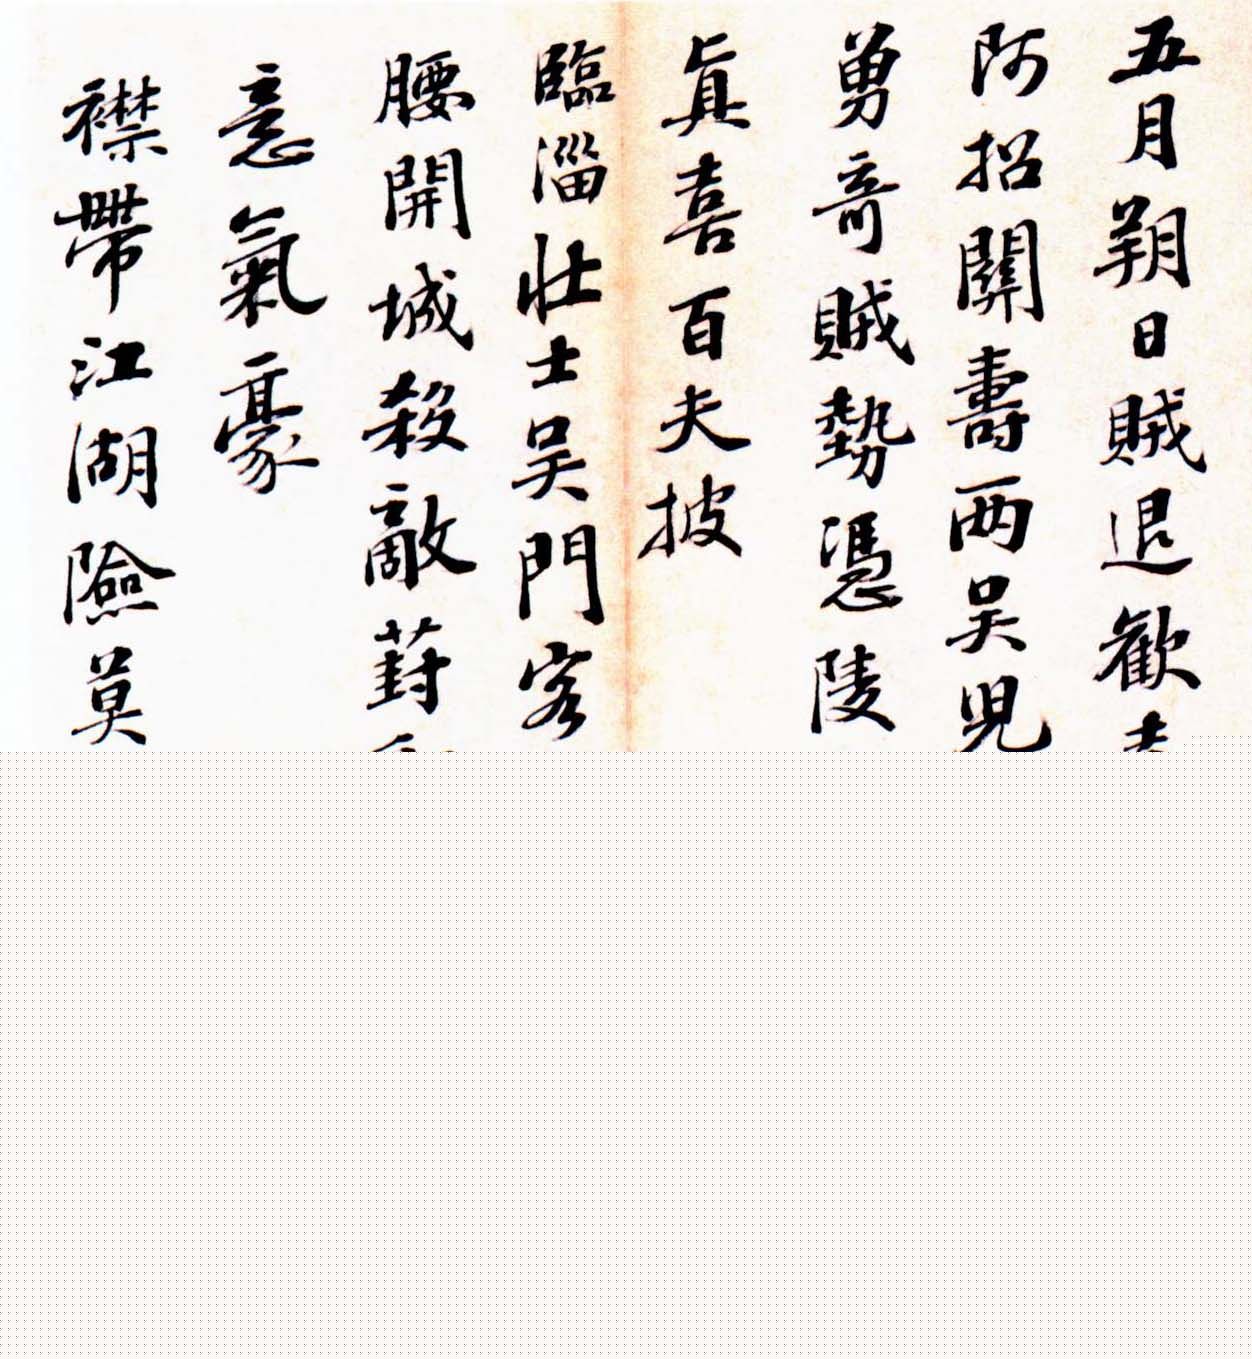 五月朔日賊退歡
阿招關壽両吴兒
勇奇賊勢憑陵
真喜百夫披
臨淄壯士吴門客
腰開城殺敵葑
意氣豪
襟帶江湖險莫